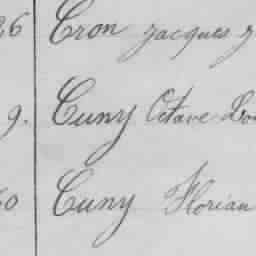 26 Cron Jacques J
9. Cuny Octave Lou
60 Cuny Florian